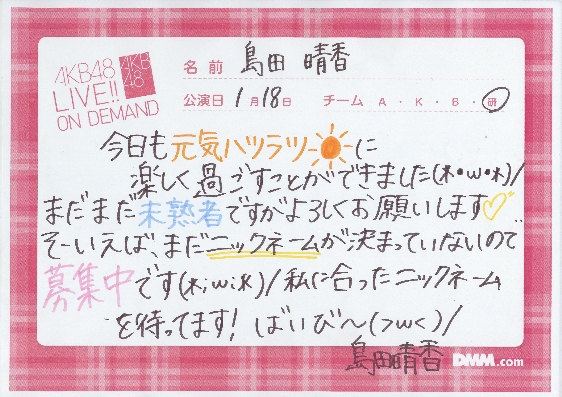 AKB48
LIVE!!
ON DEMAND
AKB
48
名前 島田 晴香
公演日 1月18日 チーム A・K・B・研
今日も元気ハツラツ☀に
楽しく過ごすことができました(*・ω・*)/
まだまだ未熟者ですがよろしくお願いします♡
そーいえば、まだニックネームが決まっていないので
募集中です(*;ω;*)/ 私に合ったニックネーム
を待ってます! ばいび〜(>ω<)/
島田晴香
DMM.com